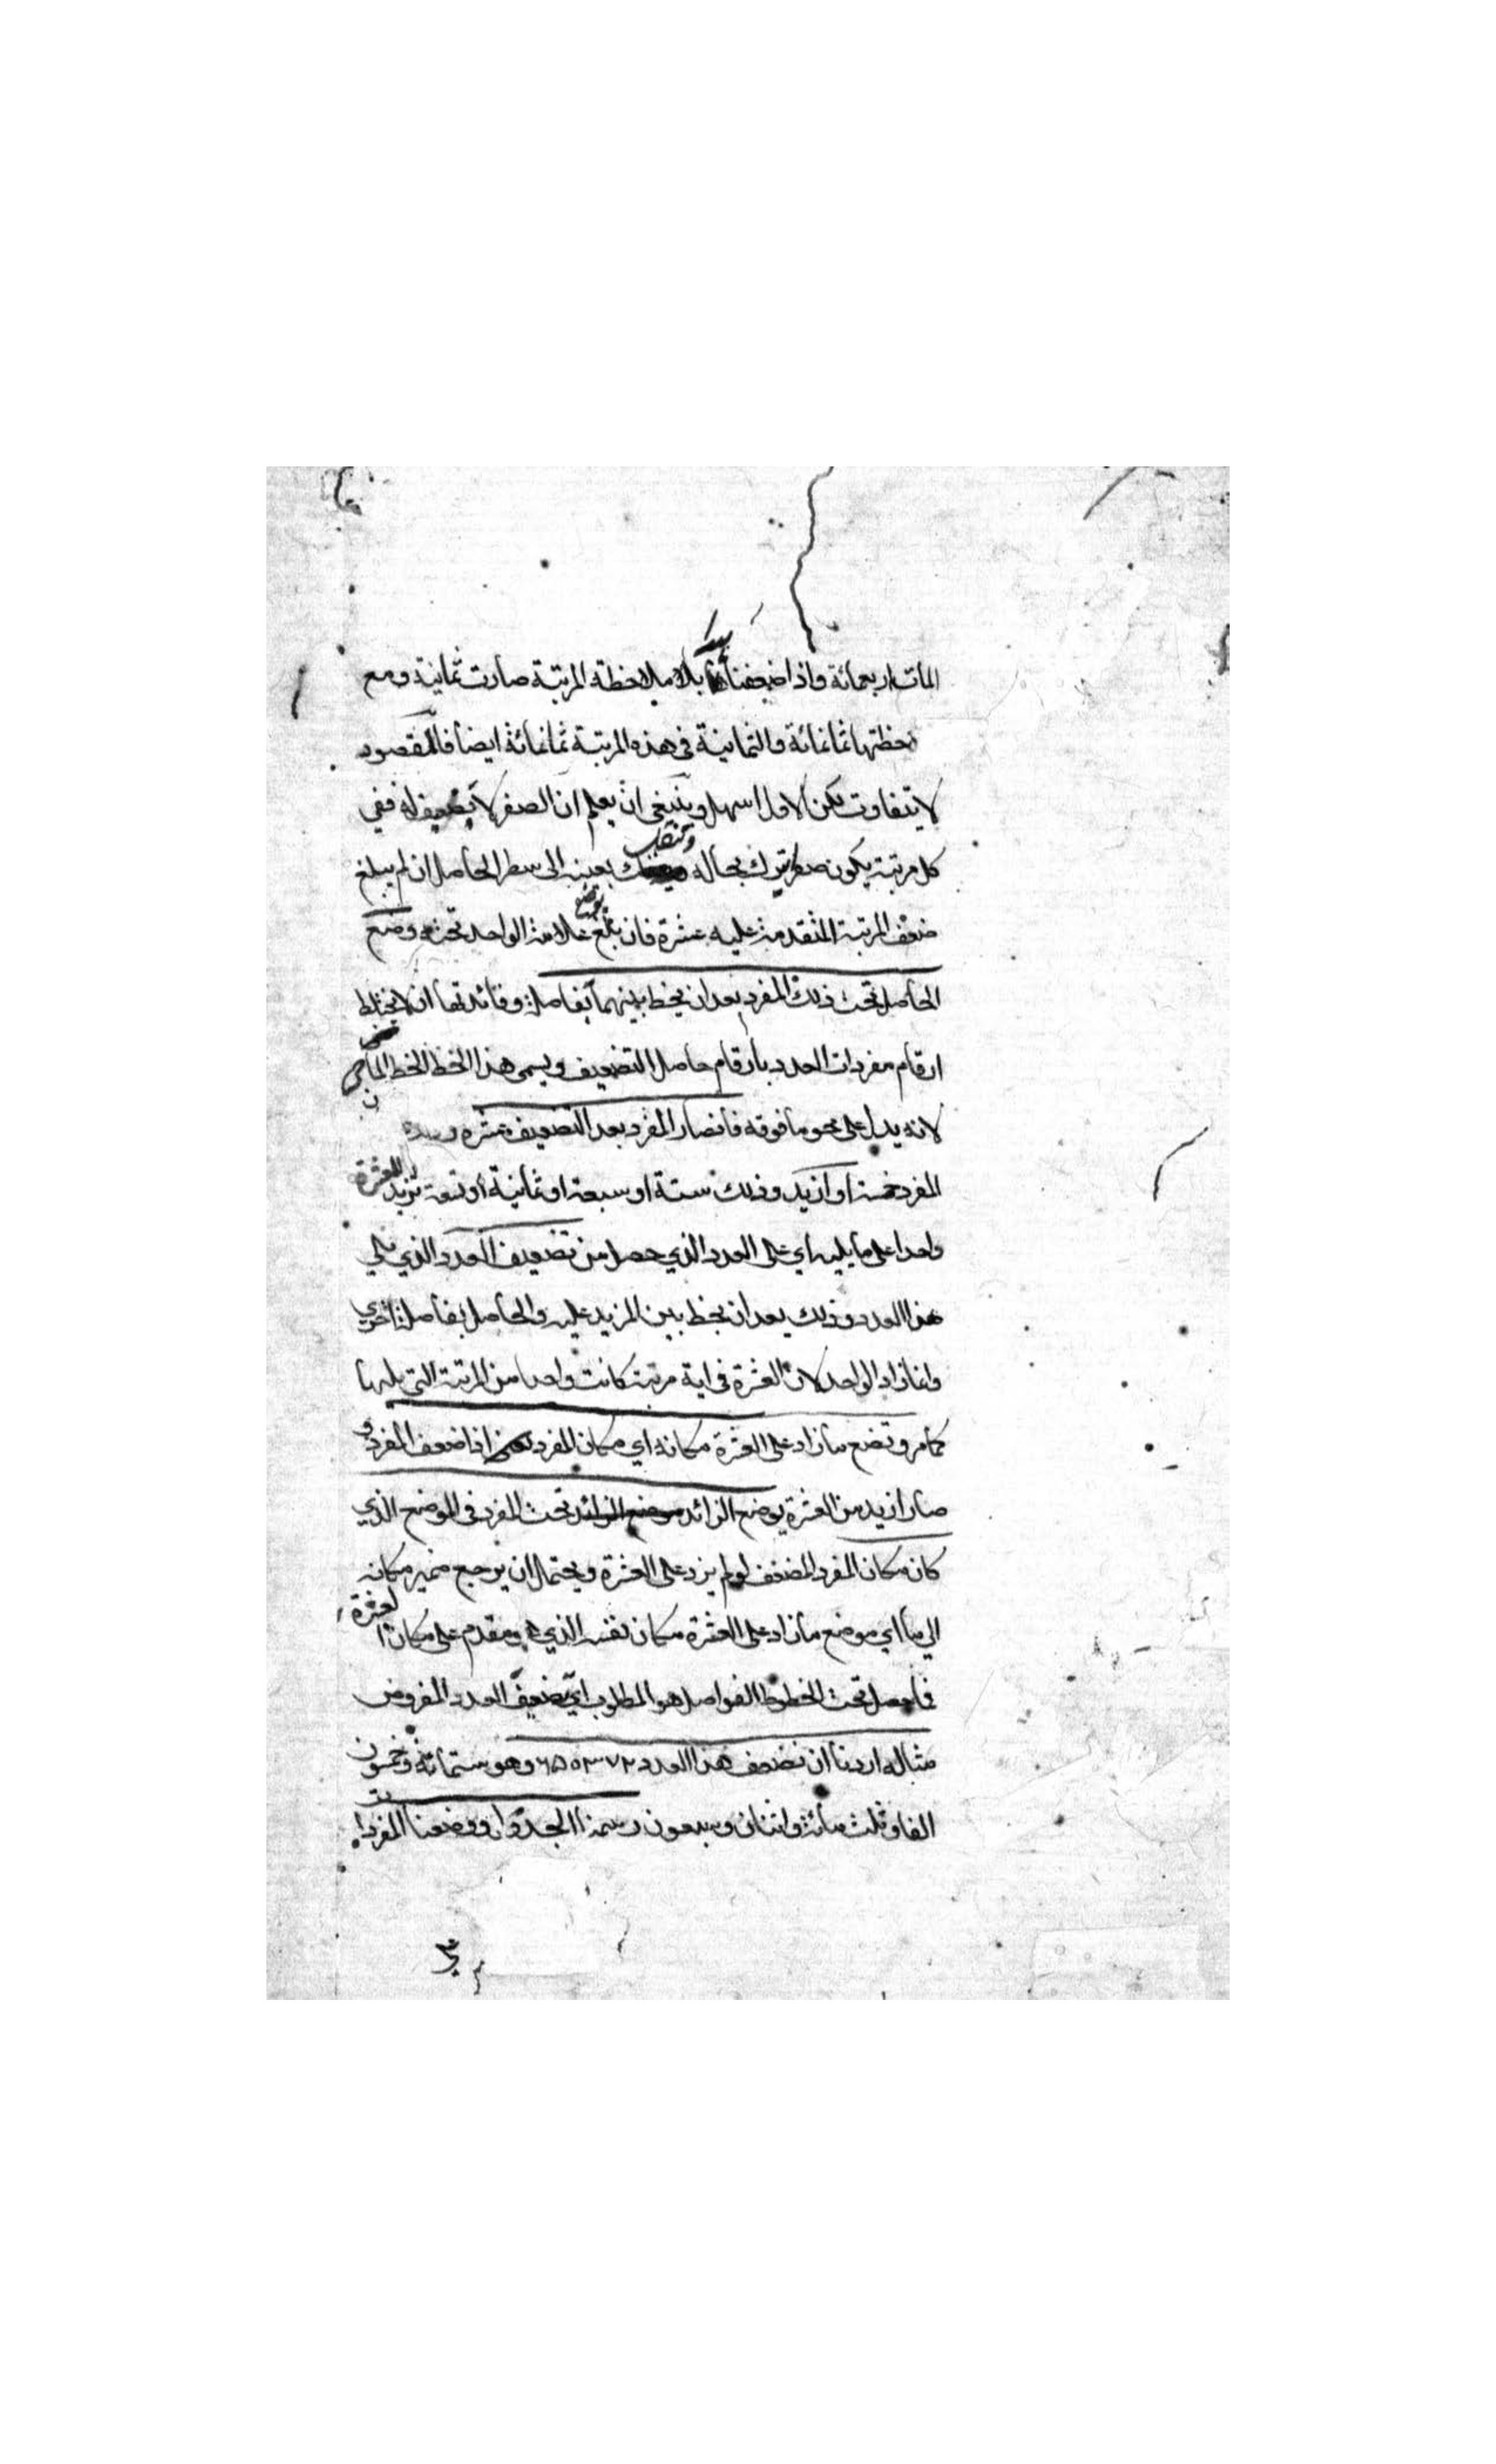 المات اربعمائة واذا ضعفنا بلا ملاحظة المرتبة صارت ثمانية ومع
حظتها ثمانمائة والثمانية في هذه المرتبة ثمانمائة ايضا فالمقصود
لا يتفاوت لكن الاول اسهل وينبغي ان يعلم ان الصفر لا تضعيف له ففي
كل مرتبة يكون صفر يترك بحاله وتنقل بعينه الى سطر الحاصل ان لم يبلغ
ضعف المرتبة المتقدمة عليه عشرة فان بلغ يوضع علامة الواحد تحته وضع
الحاصل تحت ذلك المفرد بعد ان يخط بينهما بفاصلة وفائدتها ان لا يختلط
ارقام مفردات العدد بارقام حاصل التضعيف ويسمى هذا الخط الخط الماحي
لانه يدل على محو ما فوقه فان صار المفرد بعد التضعيف عشرة
المفرد خمسة او ازيد وذلك ستة او سبعة او ثمانية او تسعة تزيد للعشرة
واحدا على ما يليه اي على العدد الذي حصل من تضعيف العدد الذي يلي
هذا العدد وذلك بعد ان يخط بين المزيد عليه والحاصل بفاصلة اخرى
وانما زاد الواحد لان العشرة في اية مرتبة كانت واحد من المرتبة التي يليها
كما مر وتضع ما زاد على العشرة مكانه اي مكان المفرد اذا ضعف المفرد و
صار ازيد من العشرة يوضع الزائد موضع الزائد تحت المفرد في الموضع الذي
كان مكان المفرد المضعف لو لم يزد على العشرة ويحتمل ان يرجع ضمير مكانه
الى ما اي موضع ما زاد على العشرة مكان نفسه الذي هو مقدم على مكان العشرة
فما حصل تحت الخطوط الفواصل هو المطلوب اي تضعيف العدد المفروض
مثاله اردنا ان نضعف هذا العدد ٦٥٠٣٧٢ وهو ستمائة وخمسون
الفا وثلث مائة واثنان وسبعون رسمنا الجدول ووضعنا المفردات